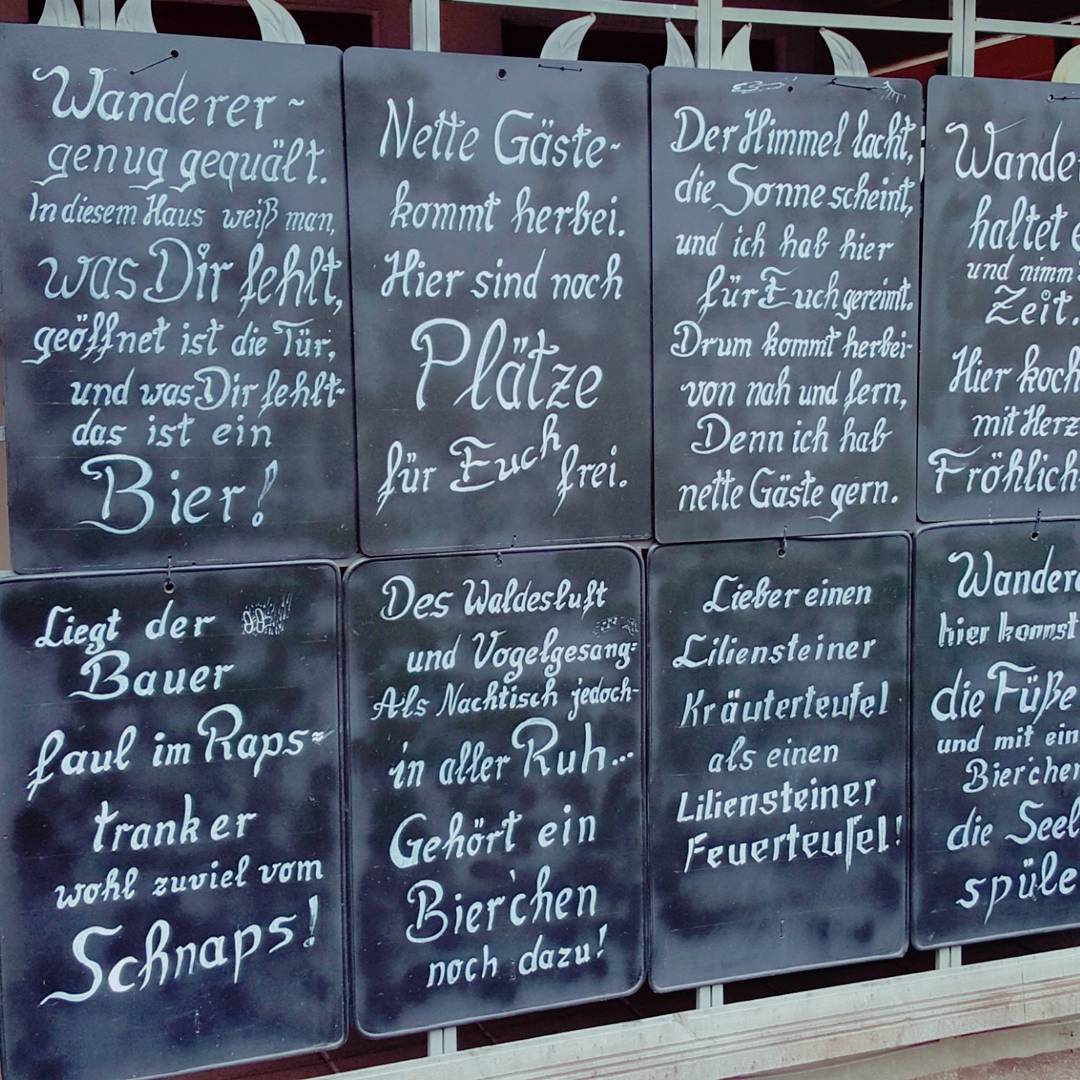 Wanderer ~
genug gequält.
In diesem Haus weiß man,
was Dir fehlt,
geöffnet ist die Tür,
und was Dir fehlt-
das ist ein
Bier!
Nette Gäste~
kommt herbei.
Hier sind noch
Plätze
für Euch frei.
Der Himmel lacht,
die Sonne scheint,
und ich hab hier
für Euch gereimt.
Drum kommt herbei-
von nah und fern,
Denn ich hab
nette Gäste gern.
haltet
und nimm
Zeit.
Hier
mit Herz
Liegt der
Bauer
faul im Raps=
tranker
wohl zuviel vom
Schnaps!
Des Waldesluft
und Vogelgesang=
Als Nachtisch jedoch-
in aller Ruh...
Gehört ein
Bier'chen
noch dazu!
Lieber einen
Liliensteiner
Kräuterteufel
als einen
Liliensteiner
Feuerteufel!
hier kannst
die Füße
und mit ein
Bier'chen
die Seel
spüle